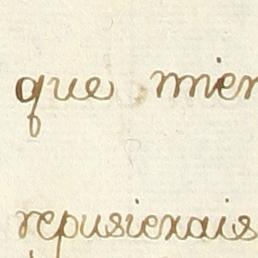 que mien
repusierais